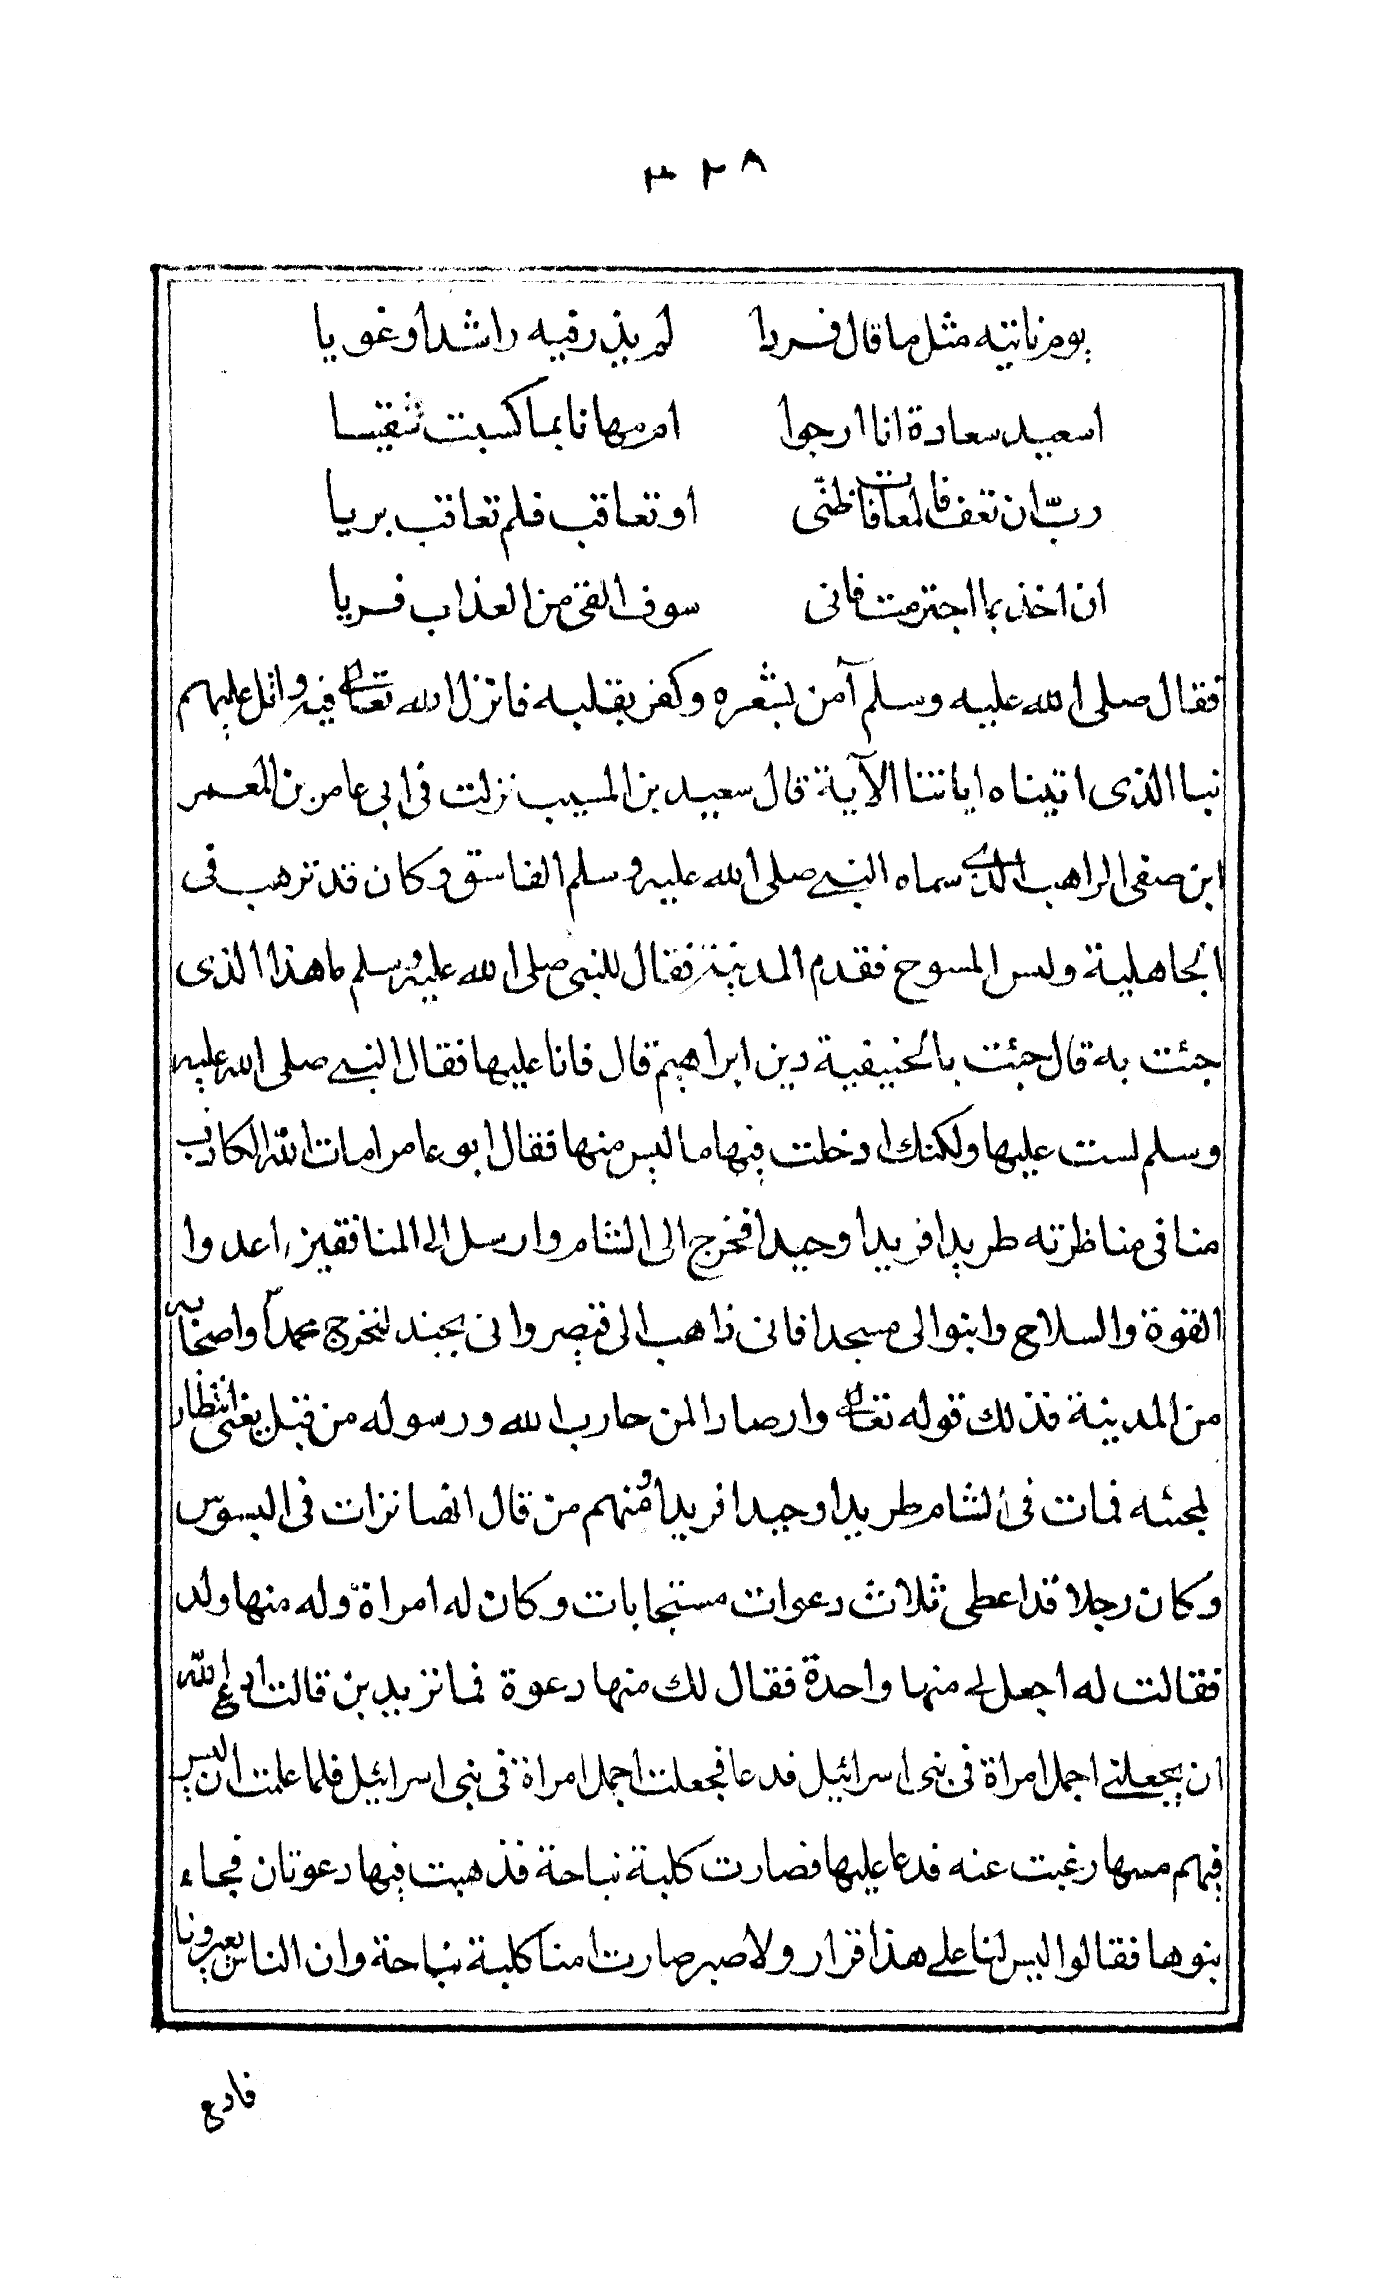 ٣٢٨
يوم ناتيه مثل ما قال فردا لم يذر فيه راشدا وغويا
اسعيد سعادة انا ارجوا ام مهانا بما كسبت شقيا
ربّ ان تعف فالمعافات ظنّى او تعاقب فلم تعاقب بريا
ان اخذ بما اجترمت فانى سوف القى من العذاب فريا
فقال صلى الله عليه وسلم آمن بشعره وكفر بقلبه فانزل الله تعالى فيه واتل عليهم
نبا الذى اتيناه اياتنا الآية قال سعيد بن المسيب نزلت فى ابى عامر بن المعمر
ابن صفى الراهب الذى سماه النبى صلى الله عليه وسلم الفاسق وكان قد ترهب فى
الجاهلية ولبس المسوح فقدم المدينة فقال للنبى صلى الله عليه وسلم ما هذا الذى
جئت به قال جئت بالحنيفية دين ابراهيم قال فانا عليها فقال النبى صلى الله عليه
وسلم لست عليها ولكنك ادخلت فيها ما ليس منها فقال ابو عامر امات الله الكاذب
منا فى مناظرته طريدا فريدا وحيدا فخرج الى الشام وارسل الى المنافقين اعدوا
القوة والسلاح وابنوا لى مسجدا فانى ذاهب الى قيصر واتى بجند لنخرج محمدا واصحابه
من المدينة فذلك قوله تعالى وارصادا لمن حارب الله ورسوله من قبل يعنى انتظار
لمجئه فمات فى الشام طريدا وحيدا فريدا ومنهم من قال انها نزلت فى البسوس
وكان رجلا قد اعطى ثلاث دعوات مستجابات وكان له امراة وله منها ولد
فقالت له اجعل لى منها واحدة فقال لك منها دعوة فما تزيدين قالت ادع الله
ان يجعلنى اجمل امراة فى بنى اسرائيل فدعا فجعلت اجمل امراة فى بنى اسرائيل فلما علمت ان ليس
فيهم مثلها رغبت عنه فدعا عليها فصارت كلبة نباحة فذهبت فيها دعوتان فجاء
بنوها فقالوا ليس لنا على هذا قرار ولا صبر صارت امنا كلبة نباحة وان الناس يعيرونا
فادع